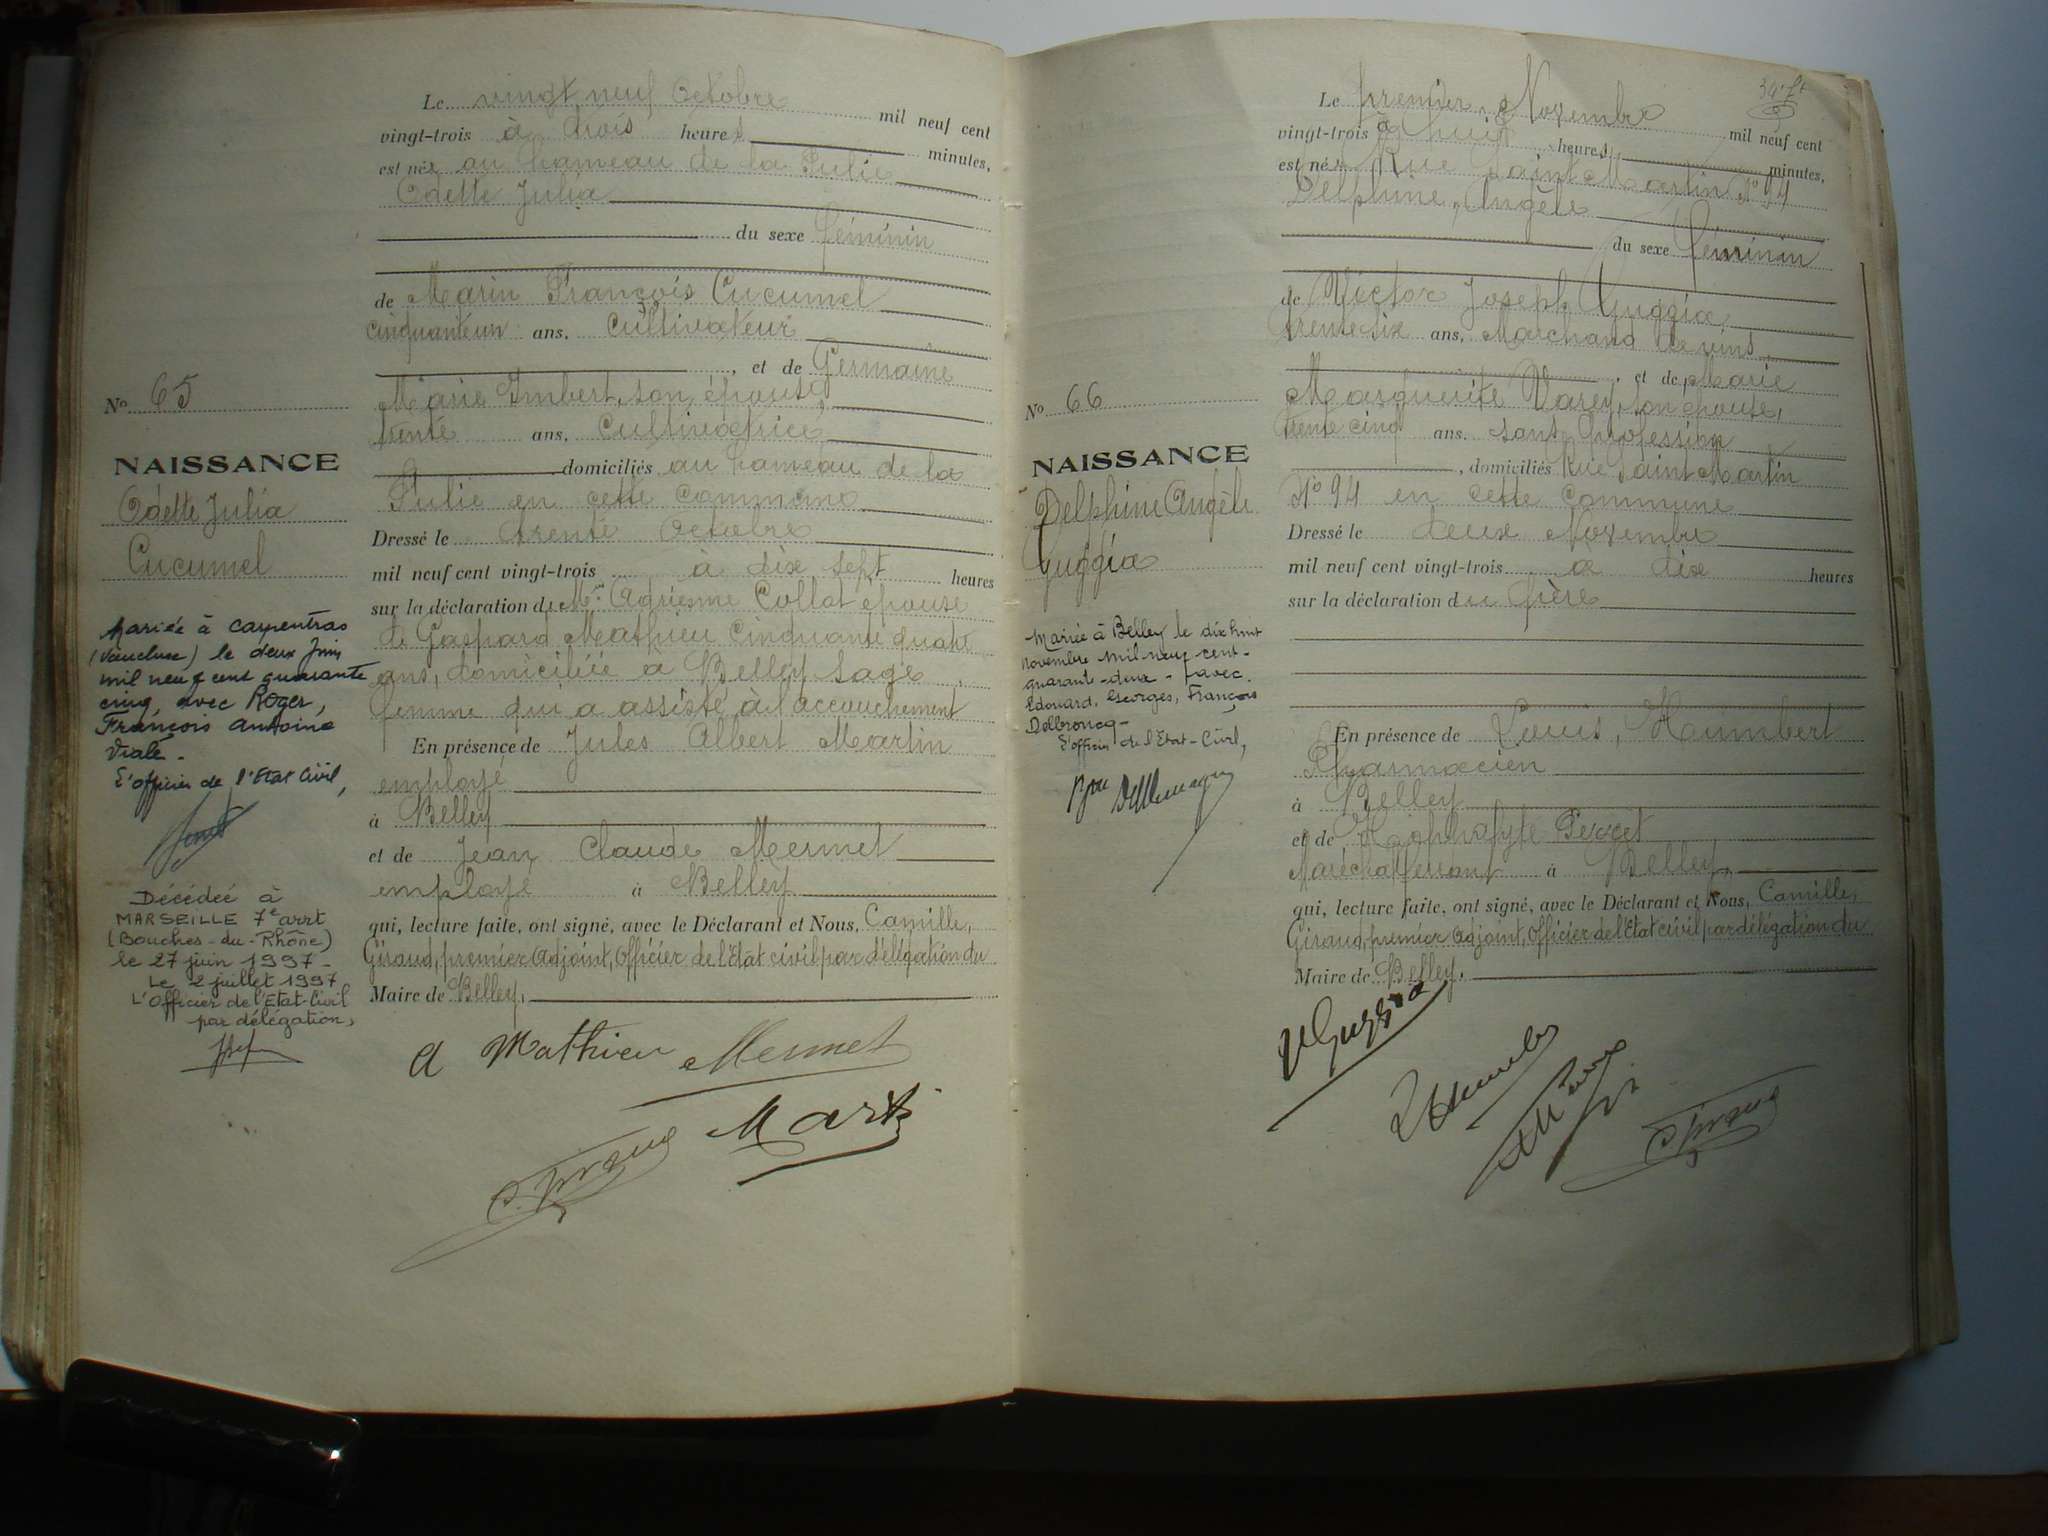 Le vingt neuf Octobre mil neuf cent
vingt-trois à trois heures minutes,
est née au hameau de la Pulie
Odette Julia
du sexe féminin
de Marin François Cucumel
cinquante un ans, Cultivateur
, et de Germaine
Marie Imbert, son épouse,
trente ans, Cultivatrice,
domiciliés au hameau de la
Pulie en cette commune
Dressé le trente Octobre
mil neuf cent vingt-trois à dix sept heures
sur la déclaration de Me Adrienne Collot épouse
de Gaspard Mathieu cinquante quatre
ans, domiciliée à Belley sage
femme qui a assisté à l'accouchement
En présence de Jules Albert Martin
employé
à Belley
et de Jean Claude Mermet
employé à Belley
qui, lecture faite, ont signé, avec le Déclarant et Nous, Camille,
Giraud, premier adjoint, officier de l'Etat civil par délégation du
Maire de Belley,
A Mathieu Mermet
Martin
C. Giraud
No 65
NAISSANCE
Odette Julia
Cucumel
Mariée à Carpentras
(Vaucluse) le deux Juin
mil neuf cent quarante
cinq, avec Roger,
François Antoine
Viale.-
L'officier de l'Etat Civil,
Décédée à
MARSEILLE 7e arrt
(Bouches-du-Rhône)
le 27 juin 1997-
Le 2 juillet 1997
L'Officier de l'Etat-Civil
par délégation,
Le premier Novembre mil neuf cent
vingt-trois à huit heures minutes,
est née Rue Saint Martin No 94
Delphine, Angèle
du sexe féminin
de Victor Joseph Guggia,
trente six ans, Marchand de vins,
, et de Marie
Marguerite Varey, son épouse,
trente cinq ans, sans profession
, domiciliés Rue Saint Martin
No 94 en cette commune
Dressé le deux Novembre
mil neuf cent vingt-trois à dix heures
sur la déclaration du Père
En présence de Louis, Humbert
Pharmacien
à Belley
et de Perret
Maréchal ferrant à Belley,
qui, lecture faite, ont signé, avec le Déclarant et Nous, Camille,
Giraud, premier adjoint, officier de l'Etat civil par délégation du
Maire de Belley.
V Guggia
C. Giraud
No 66
NAISSANCE
Delphine Angèle
Guggia
Mariée à Belley le dix huit
novembre mil-neuf cent-
quarante-deux - avec
Edouard, Georges, François
Delbroucq-
L'officier de l'Etat-Civil,